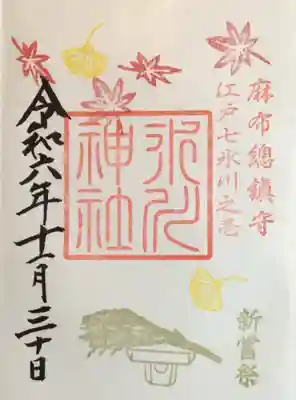 麻布總鎮守
江戸七氷川之壱
氷川神社
令和六年十一月三十日
新嘗祭